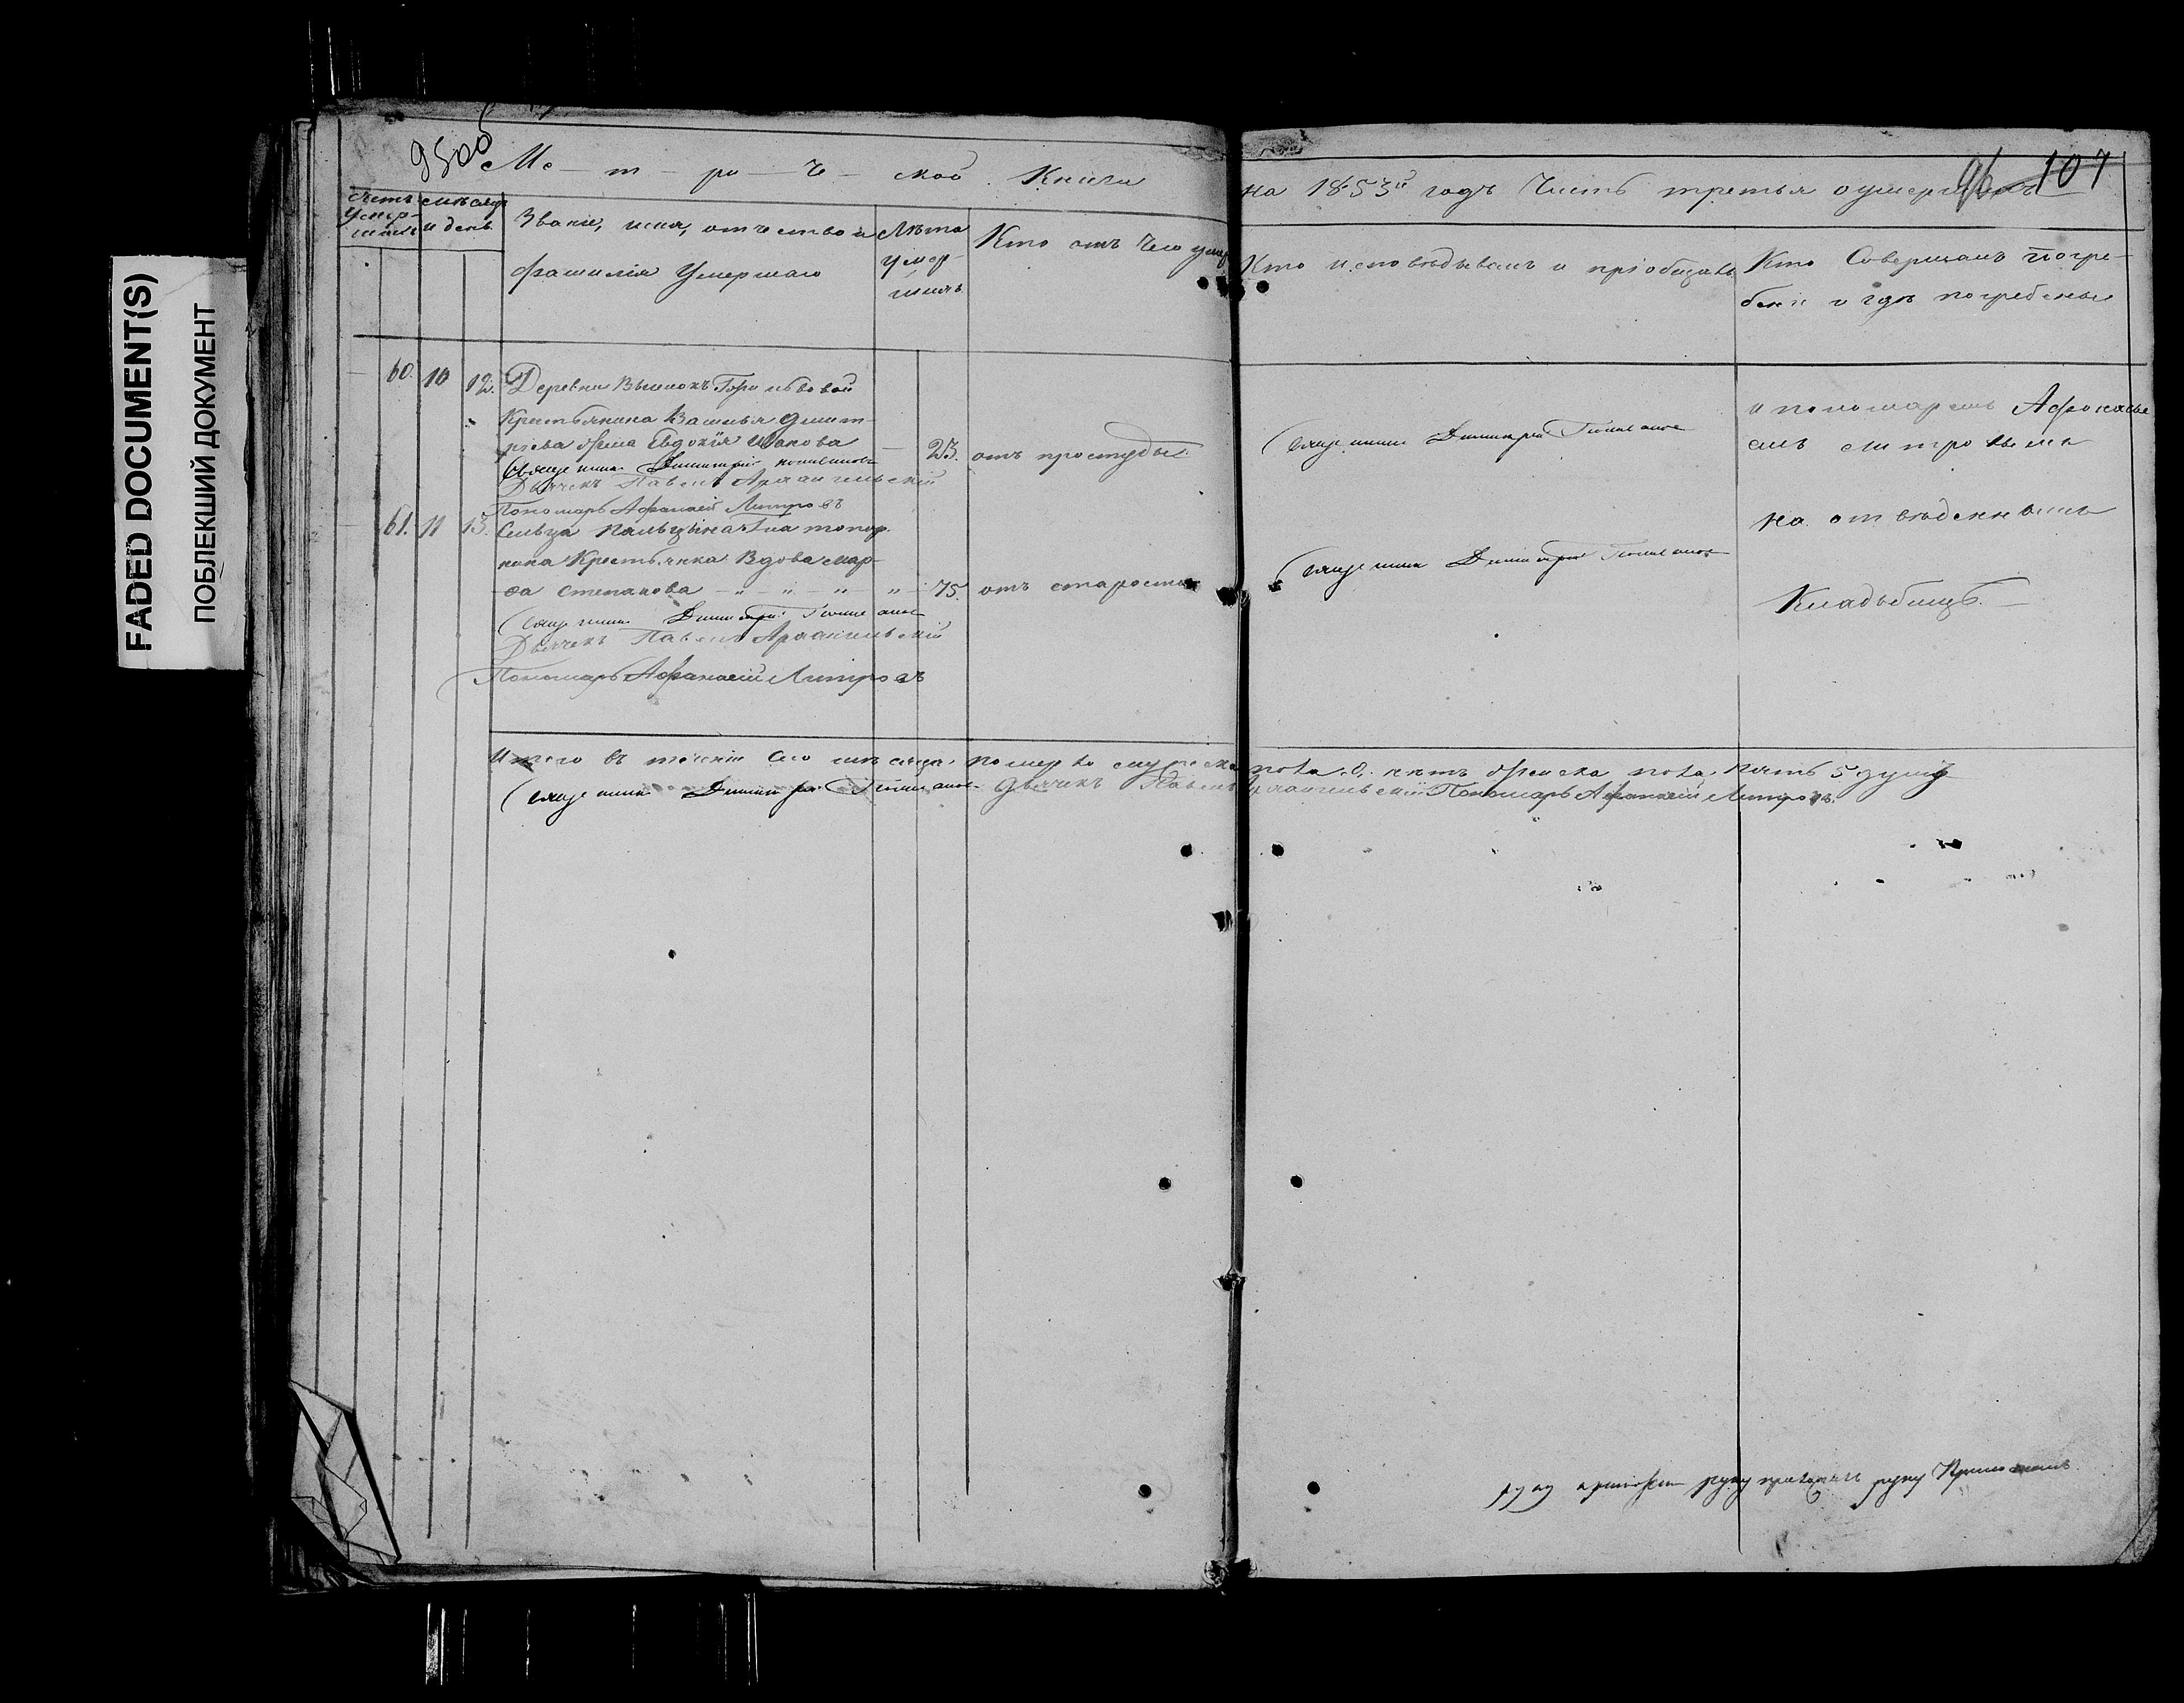 FADED DOCUMENT(S)
ПОБЛЕКШИЙ ДОКУМЕНТ
Ме - т - ри - че - ской Книги
на 1853й годъ Часть третья о умершихъ
96 107
Счетъ умер-шихъ
мѣсяцъ и день
Званіе, имя, отчество и
фамилія Умершаго
Лѣта
умер-
шихъ
Кто отъ Чего умеръ
Кто исповѣдывалъ и пріобщалъ
Кто Совершалъ погре-
беніе и гдѣ погребены
60. 10 12. Деревни
Крестьянина Василья Дмит-
ріева жена Евдокія Іякова 23. отъ простуды
Священник Димитрій
Дьячекъ Павелъ Архангельскій
Пономарь Афанасій Митровъ
Священник Димитрій
и пономаремъ Афонасье
емъ Митровымъ
61. 11 13. Сельца Пальцына
Крестьянка Вдова Мар-
фа Степанова - " - " - " - " - 75. отъ старости
Священник Димитрій
Дьячекъ Павелъ Архангельскій
Пономарь Афанасій Митровъ
Священник Димитрій
на отведенномъ
Кладьбищѣ. —
Итого въ теченіи Сего мѣсяца, померло мужеска пола .0. нѣтъ женска пола, пять 5 душъ
Священник Димитрій Дьячекъ Павелъ Архангельскій Пономарь Афанасій Митровъ.
руку руку руку